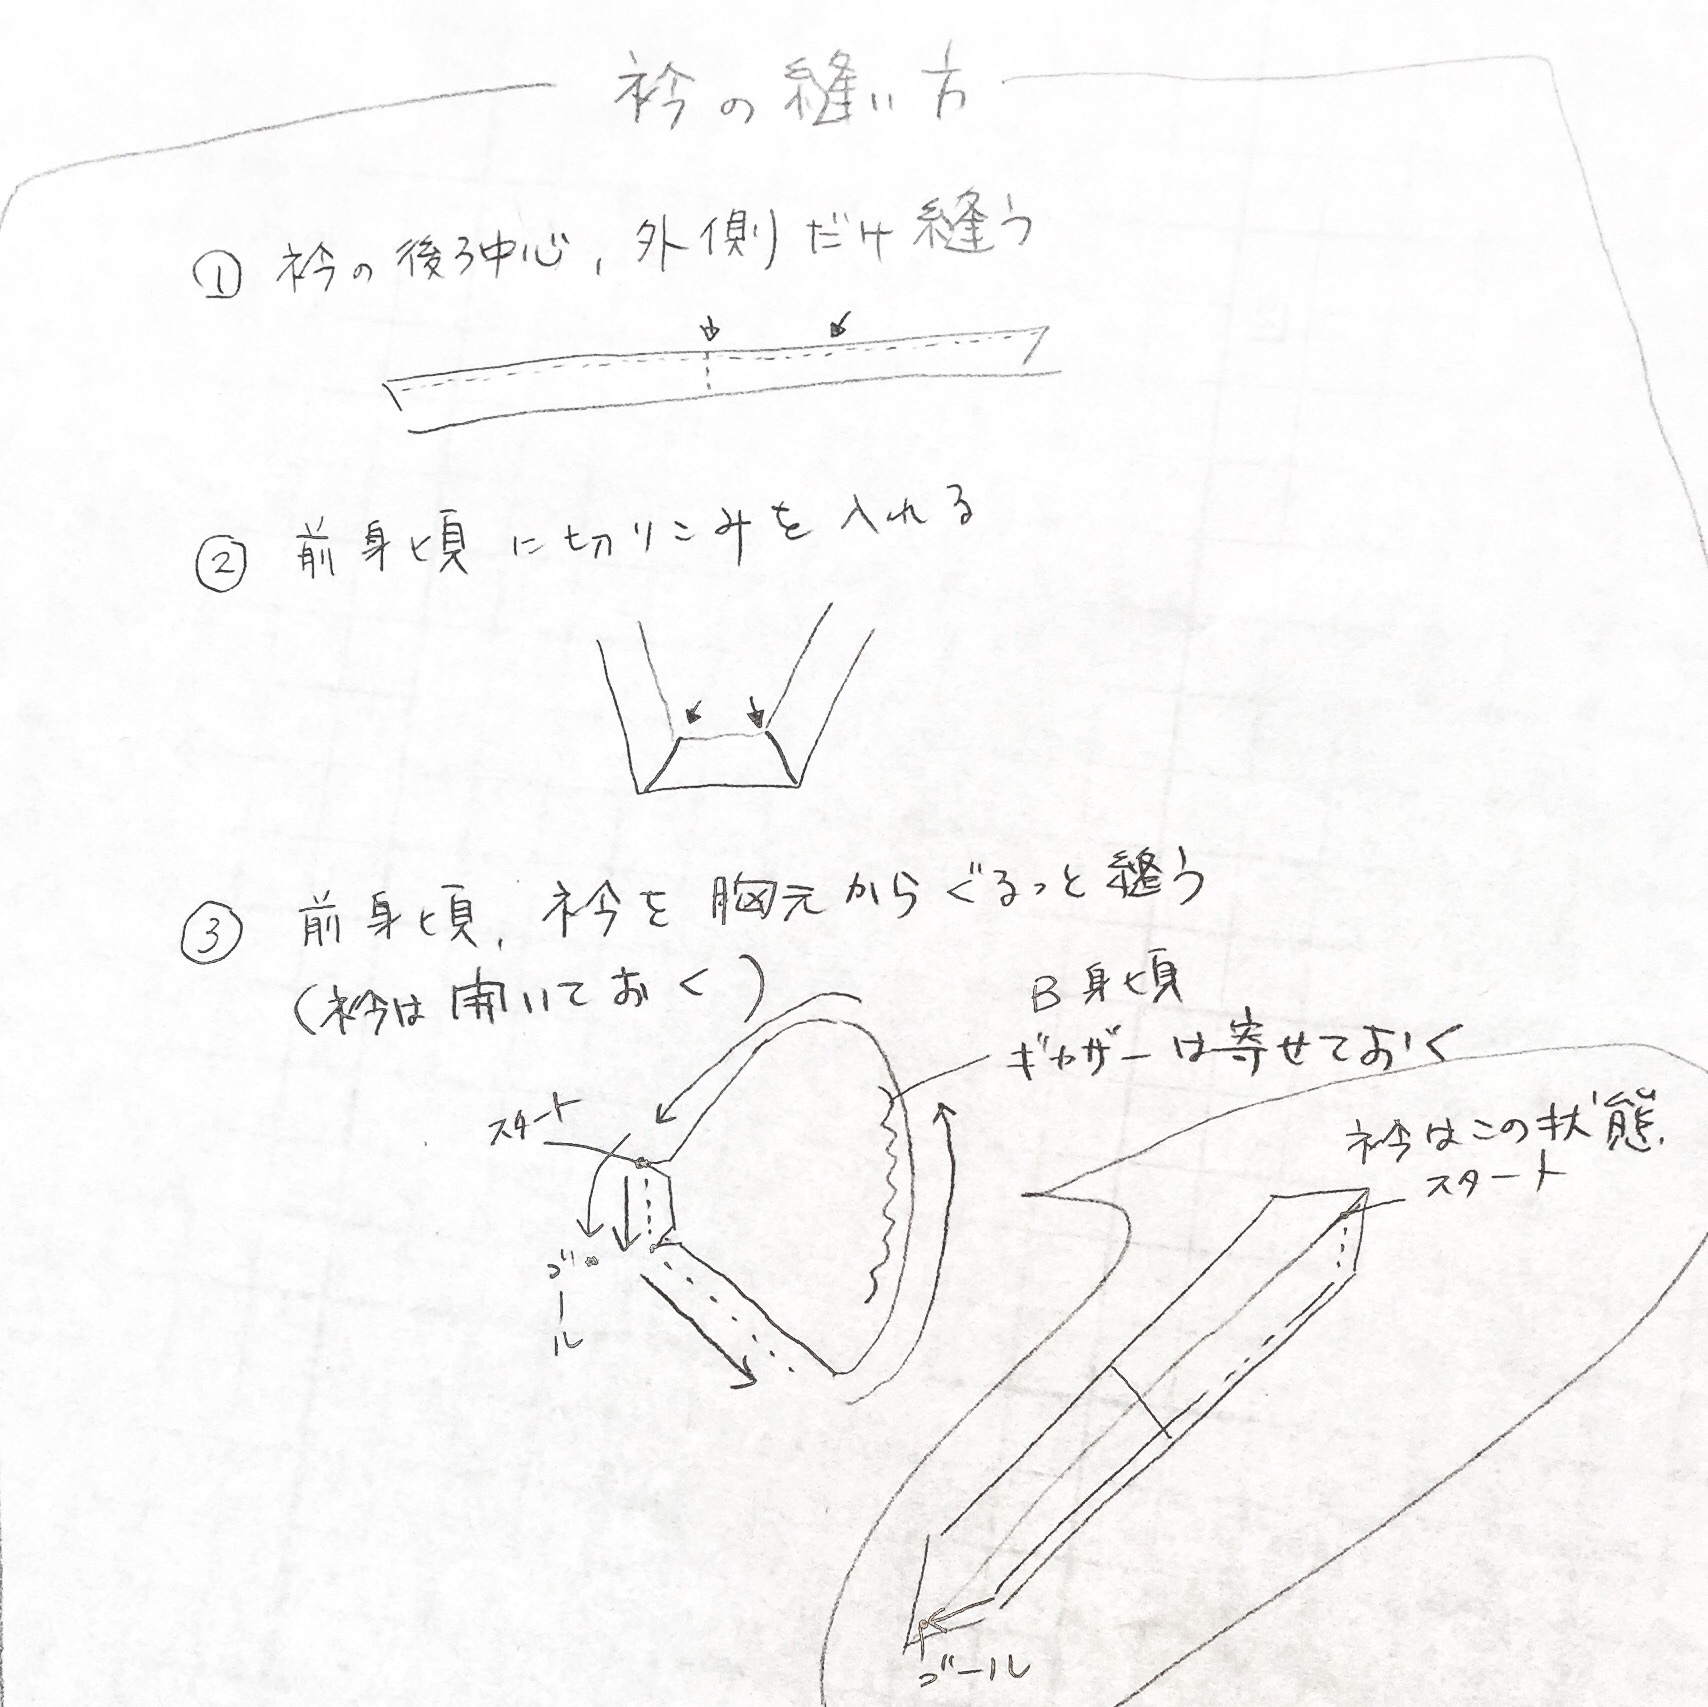 衿の縫い方
① 衿の後ろ中心、外側だけ縫う
② 前身頃に切りこみを入れる
③ 前身頃、衿を胸元からぐるっと縫う
(衿は開いておく)
B身頃
ギャザーは寄せておく
スタート
ゴール
衿はこの状態.
スタート
ゴール